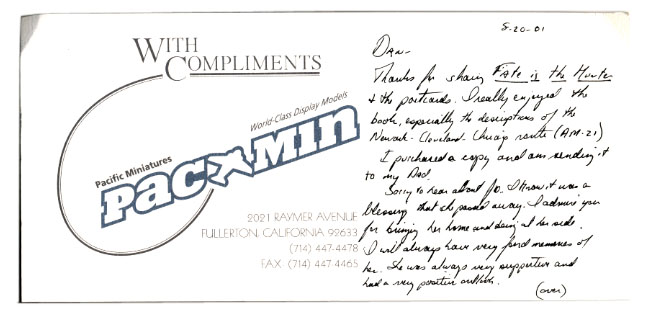 WITH
COMPLIMENTS
World-Class Display Models
Pacific Miniatures
PACMIN
2021 RAYMER AVENUE
FULLERTON, CALIFORNIA 92633
(714) 447-4478
FAX (714) 447-4465
8-20-01
Dan-
Thanks for sharing Fate is the Hunter
& the postcards. I really enjoyed the
book, especially the descriptions of the
Newark-Cleveland-Chicago route (AM-21)
I purchased a copy and am sending it
to my Dad.
Sorry to hear about Jo. I know it was a
blessing that she passed away. I admire you
for bringing her home and being at her side.
I will always have very fond memories of
her. She was always very supportive and
had a very positive outlook.
(over)